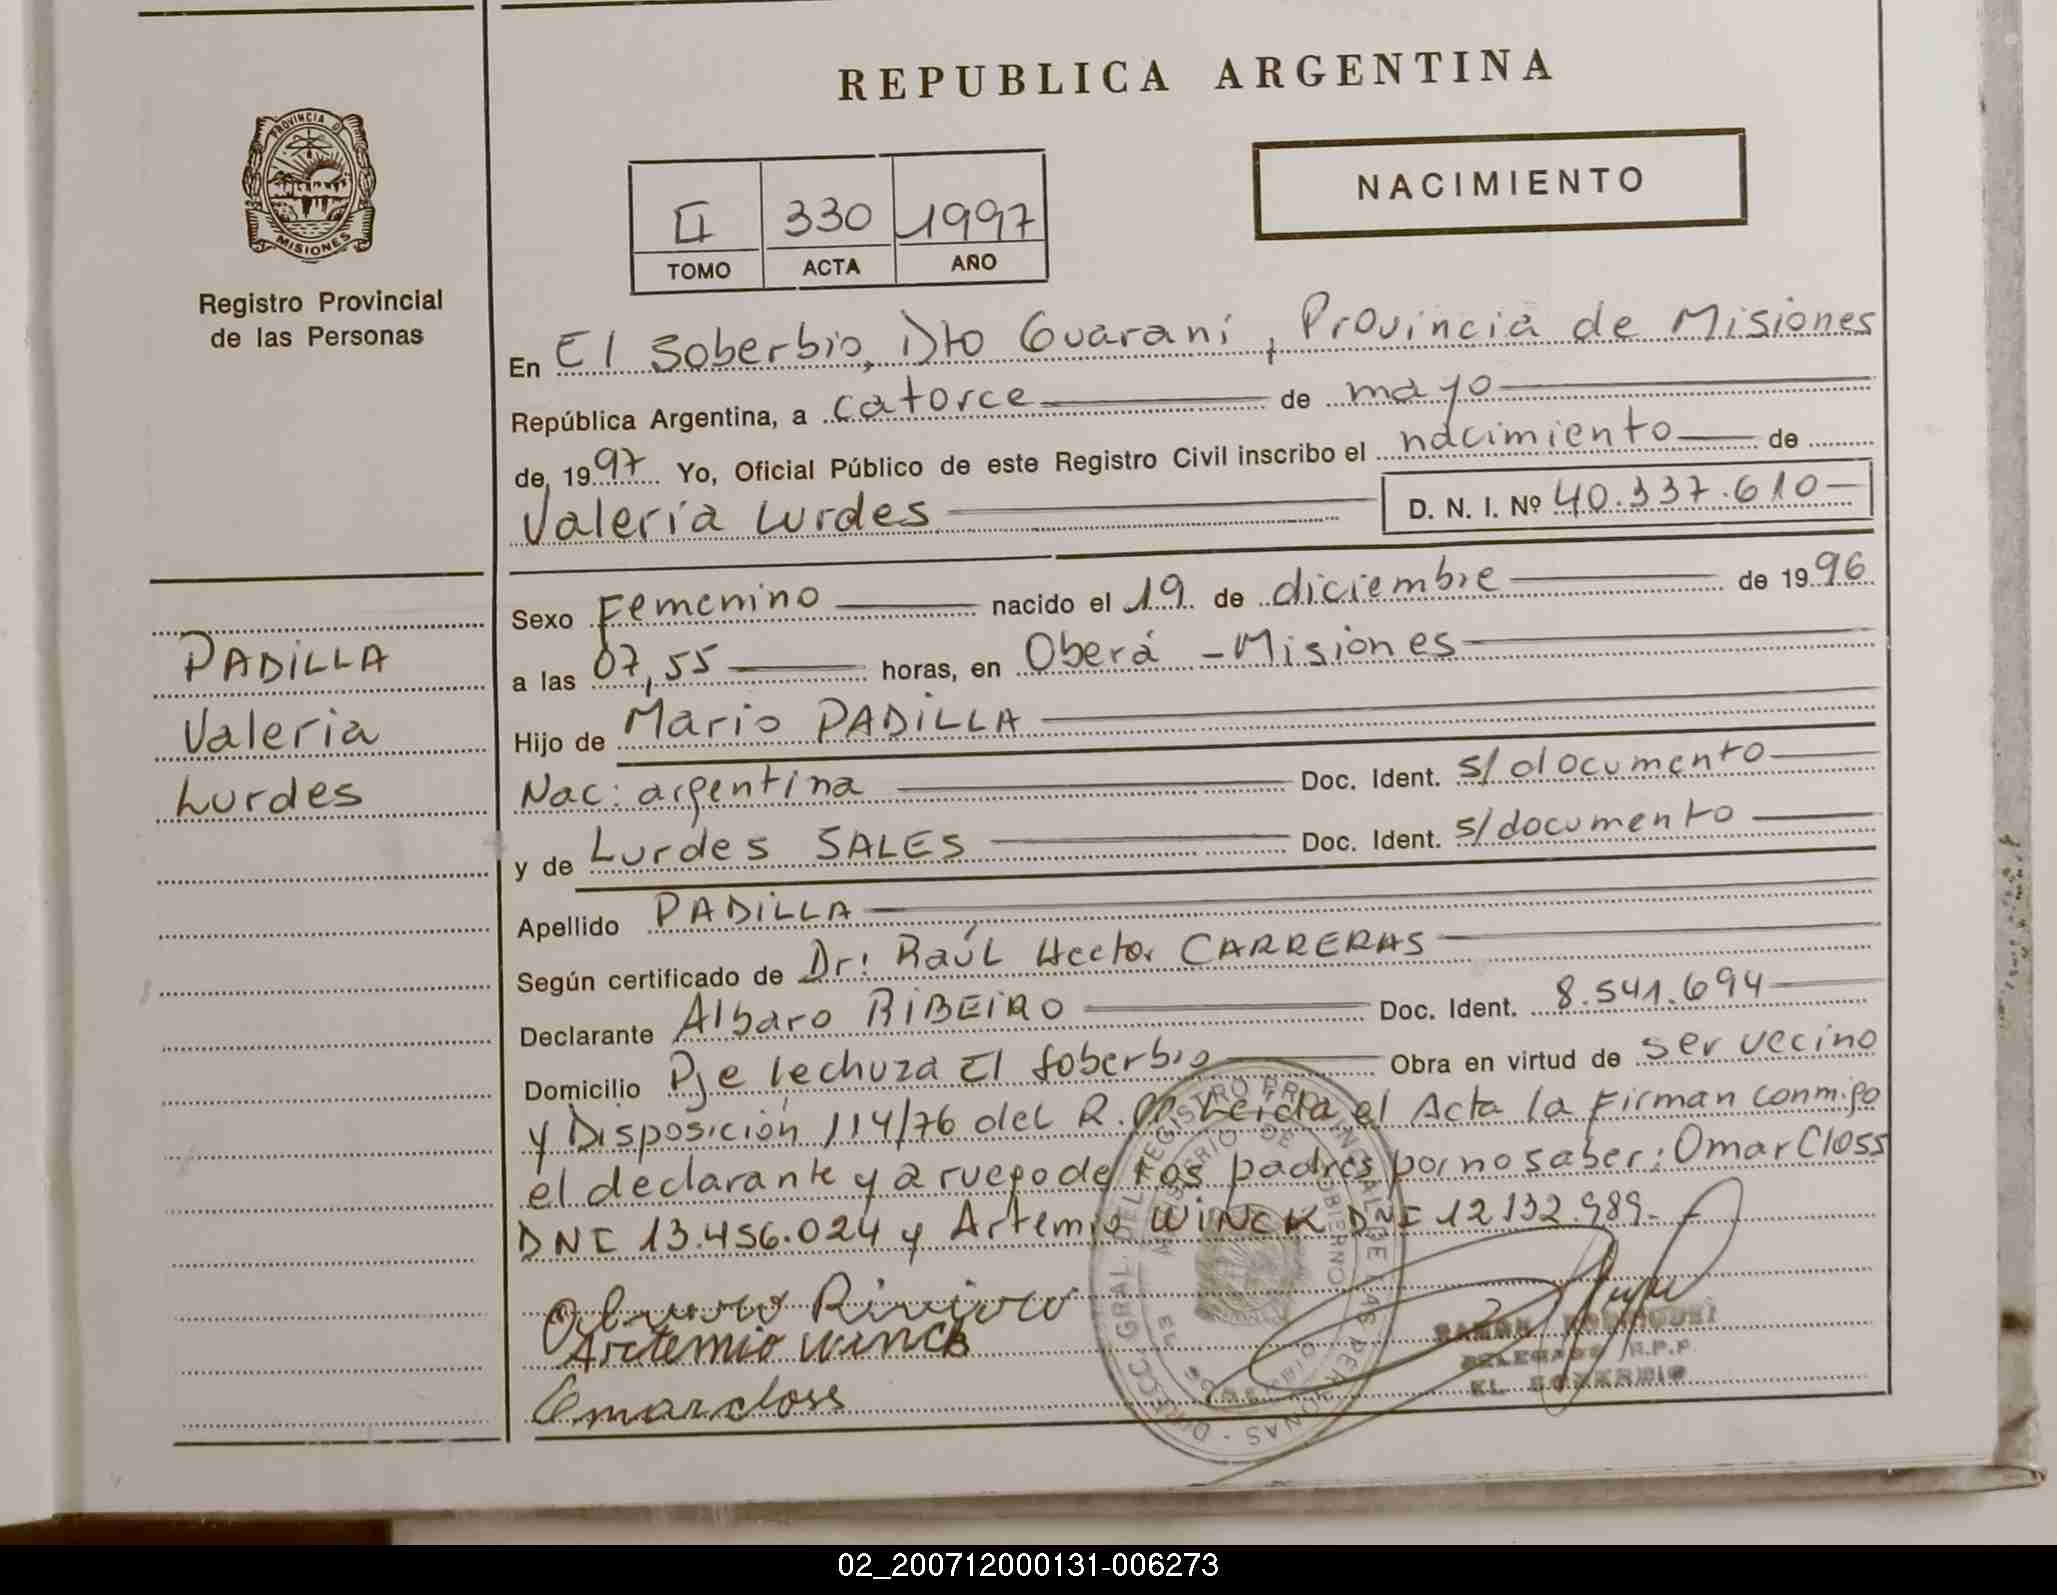 REPUBLICA ARGENTINA
PROVINCIA DE
MISIONES
Registro Provincial
de las Personas
NACIMIENTO
II 330 1997
TOMO ACTA AÑO
En El Soberbio, Dto Guaraní, Provincia de Misiones
República Argentina, a catorce de mayo
de 1997 Yo, Oficial Público de este Registro Civil inscribo el nacimiento de
Valeria Lurdes D. N. I. Nº 40.337.610
Sexo Femenino nacido el 19 de diciembre de 1996
a las 07,55 horas, en Oberá - Misiones
Hijo de Mario PADILLA
Nac: argentina Doc. Ident. s/documento
y de Lurdes SALES Doc. Ident. s/documento
Apellido PADILLA
Según certificado de Dr: Raúl Hector CARRERAS
Declarante Albaro RIBEIRO Doc. Ident. 8.541.694
Domicilio Pje lechuza El Soberbio Obra en virtud de ser vecino
y Disposición 114/76 del R.P. Leida el Acta la Firman conmigo
el declarante y a ruego de los padres por no saber: Omar Closs
DNI 13.456.024 y Artemio WINCK DNI 12132.989-
PADILLA
Valeria
Lurdes
Artemio Winck
Omar closs
DELEGADO R.P.P.
EL SOBERBIO
02_200712000131-006273